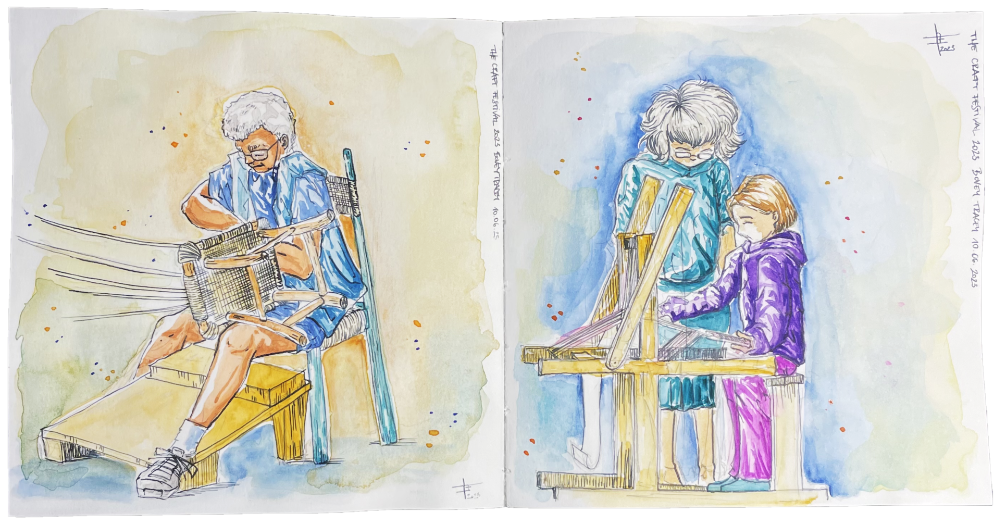 THE CRAFT FESTIVAL 2023 BOVEY TRACEY 10.06.23
THE CRAFT FESTIVAL 2023 BOVEY TRACEY 10.06.2023